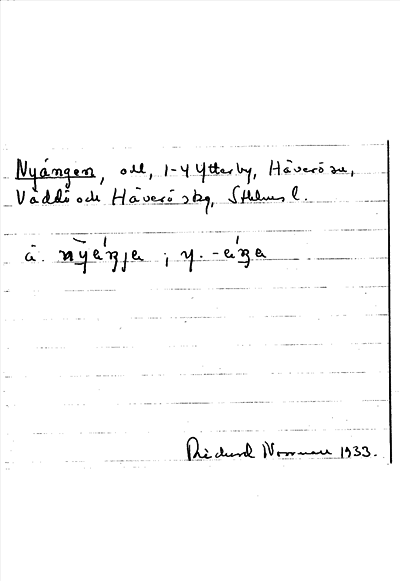 Nyängen, odl, 1-4 Ytterby, Häverö sn,
Väddö och Häverö skg, Sthlms l.
ä. ; y.
Rickard Norrman 1933.